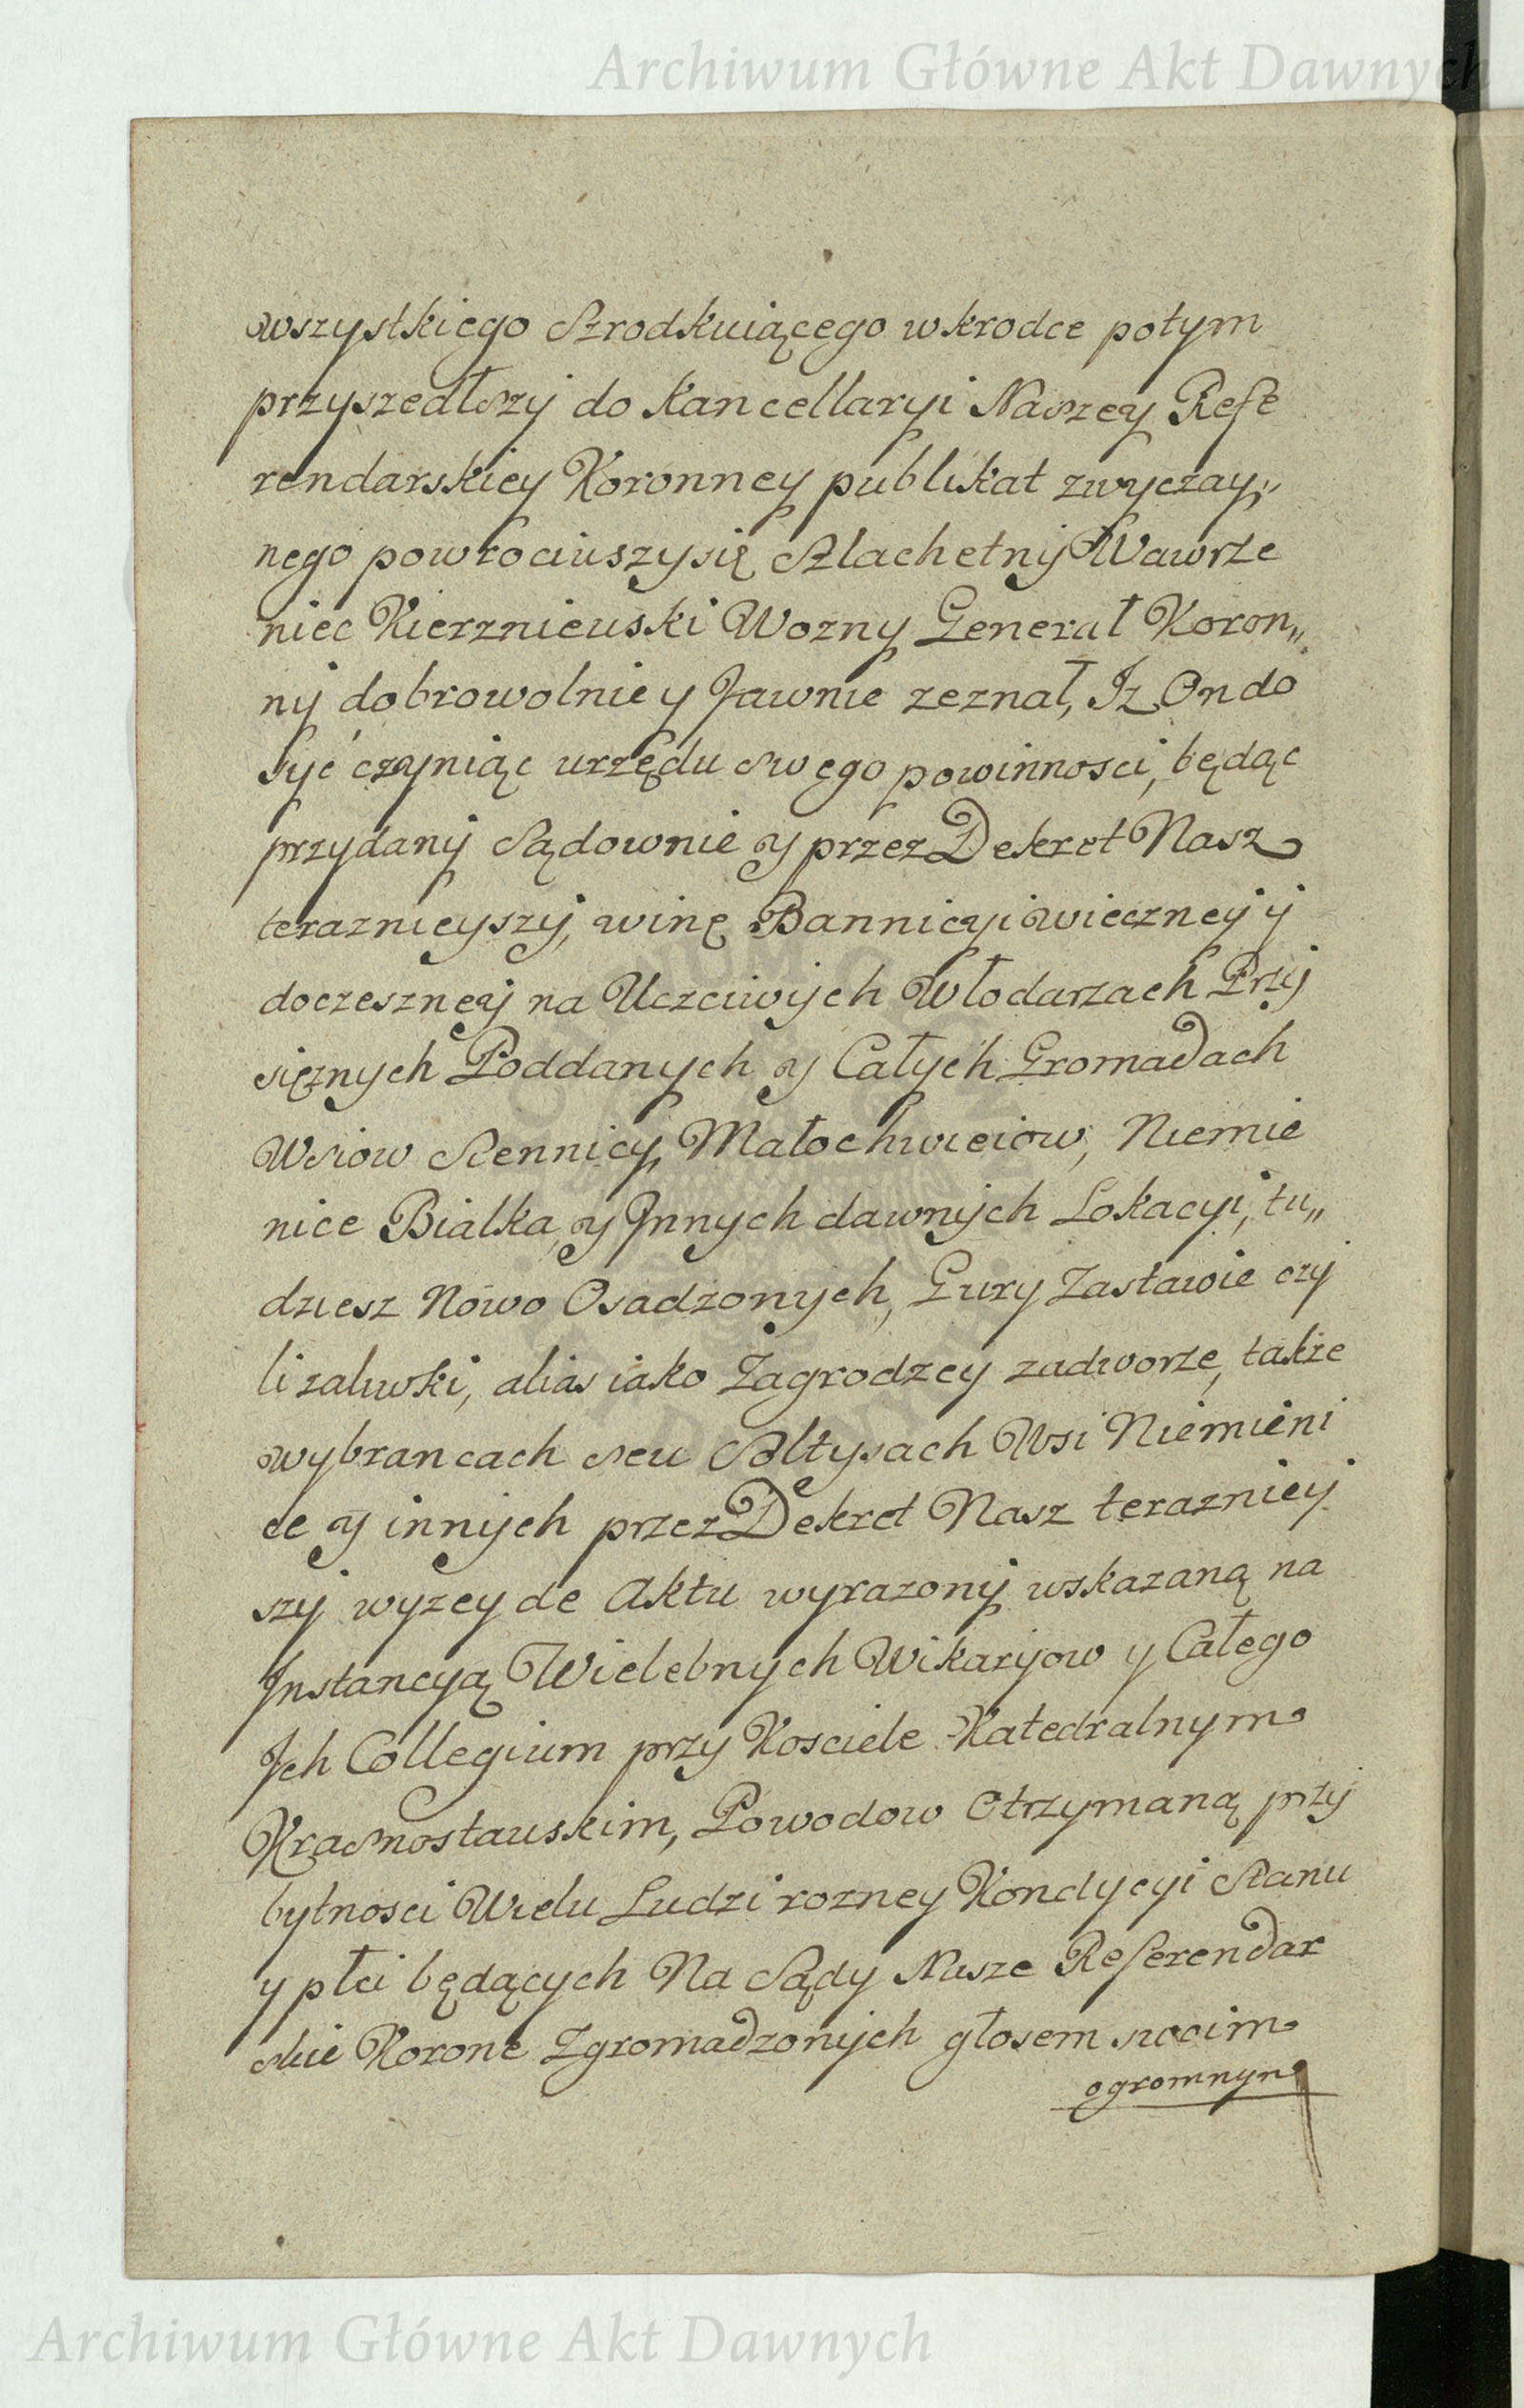 Archiwum Główne Akt Dawnych
wszystkiego Szrodkuiącego wkrodce potym
przyszedłszy do Kancellaryi Naszey Refe
rendarskiey Koronney publikat zwyczay„
nego powrociuszysię Szlachetny Wawrze
niec Kierznieuski Wozny Generał Koron„
ny dobrowolnie y Jawnie zeznał, Iz On do
syć czyniąc urzędu swego powinnosci, będąc
przydany Sądownie y przez Dekret Nasz
teraznieyszy, winę Bannicyi wieczney y
doczeszney na Uczciwych Włodarzach Przy
sięznych Poddanych y Całych Gromadach
Wsiow Siennicy, Małochwieiow, Niemie
nice Bialka, y Innych dawnych Lokacyi, tu„
dziesz Nowo Osadzonych, Gury Zastawie czy
li zaluwki, alias iako Zagrodzey zadworze, także
wybrancach seu Sołtysach Wsi Niemieni
ce y innych przez Dekret Nasz terazniey
szy wyzey de Aktu wyrazony wskazaną na
Instancyą Wielebnych Wikaryow y Całego
Ich Collegium przy Kosciele Katedralnym
Krasnostauskim, Powodow Otrzymaną przy
bytnosci Wielu Ludzi rozney Kondycyi Stanu
y płci będących Na Sądy Nasze Referendar
skie Korone Zgromadzonych głosem swoim
ogromnym
Archiwum Główne Akt Dawnych